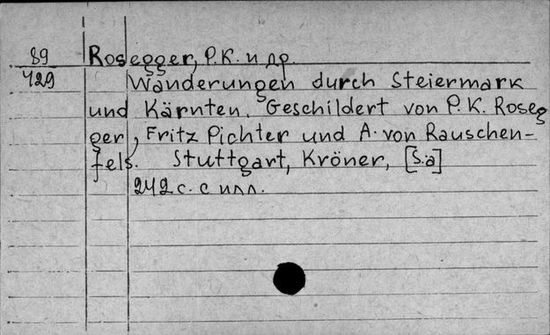 89
429
Rosegger, P.K. и др.
Wanderungen durch Steiermark
und Kärnten. Geschildert von P. K. Roseg
ger, Fritz Pichler und A. von Rauschen-
fels. Stuttgart, Kröner, [S.a]
242 с. с илл.